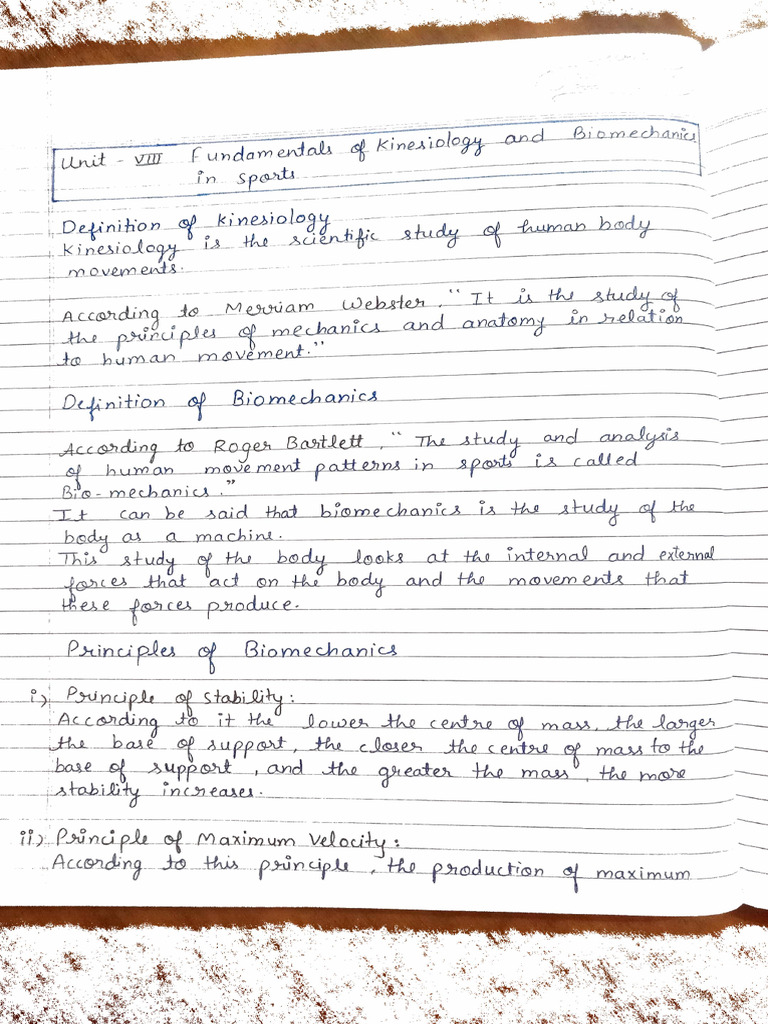 Unit - VIII Fundamentals of Kinesiology and Biomechanics
in Sports
Definition of Kinesiology
Kinesiology is the scientific study of human body
movements.
According to Merriam Webster, "It is the study of
the principles of mechanics and anatomy in relation
to human movement."
Definition of Biomechanics
According to Roger Bartlett, "The study and analysis
of human movement patterns in sports is called
Bio-mechanics."
It can be said that biomechanics is the study of the
body as a machine.
This study of the body looks at the internal and external
forces that act on the body and the movements that
these forces produce.
Principles of Biomechanics
i) Principle of Stability:
According to it the lower the centre of mass, the larger
the base of support, the closer the centre of mass to the
base of support, and the greater the mass, the more
stability increases.
ii) Principle of Maximum Velocity:
According to this principle, the production of maximum